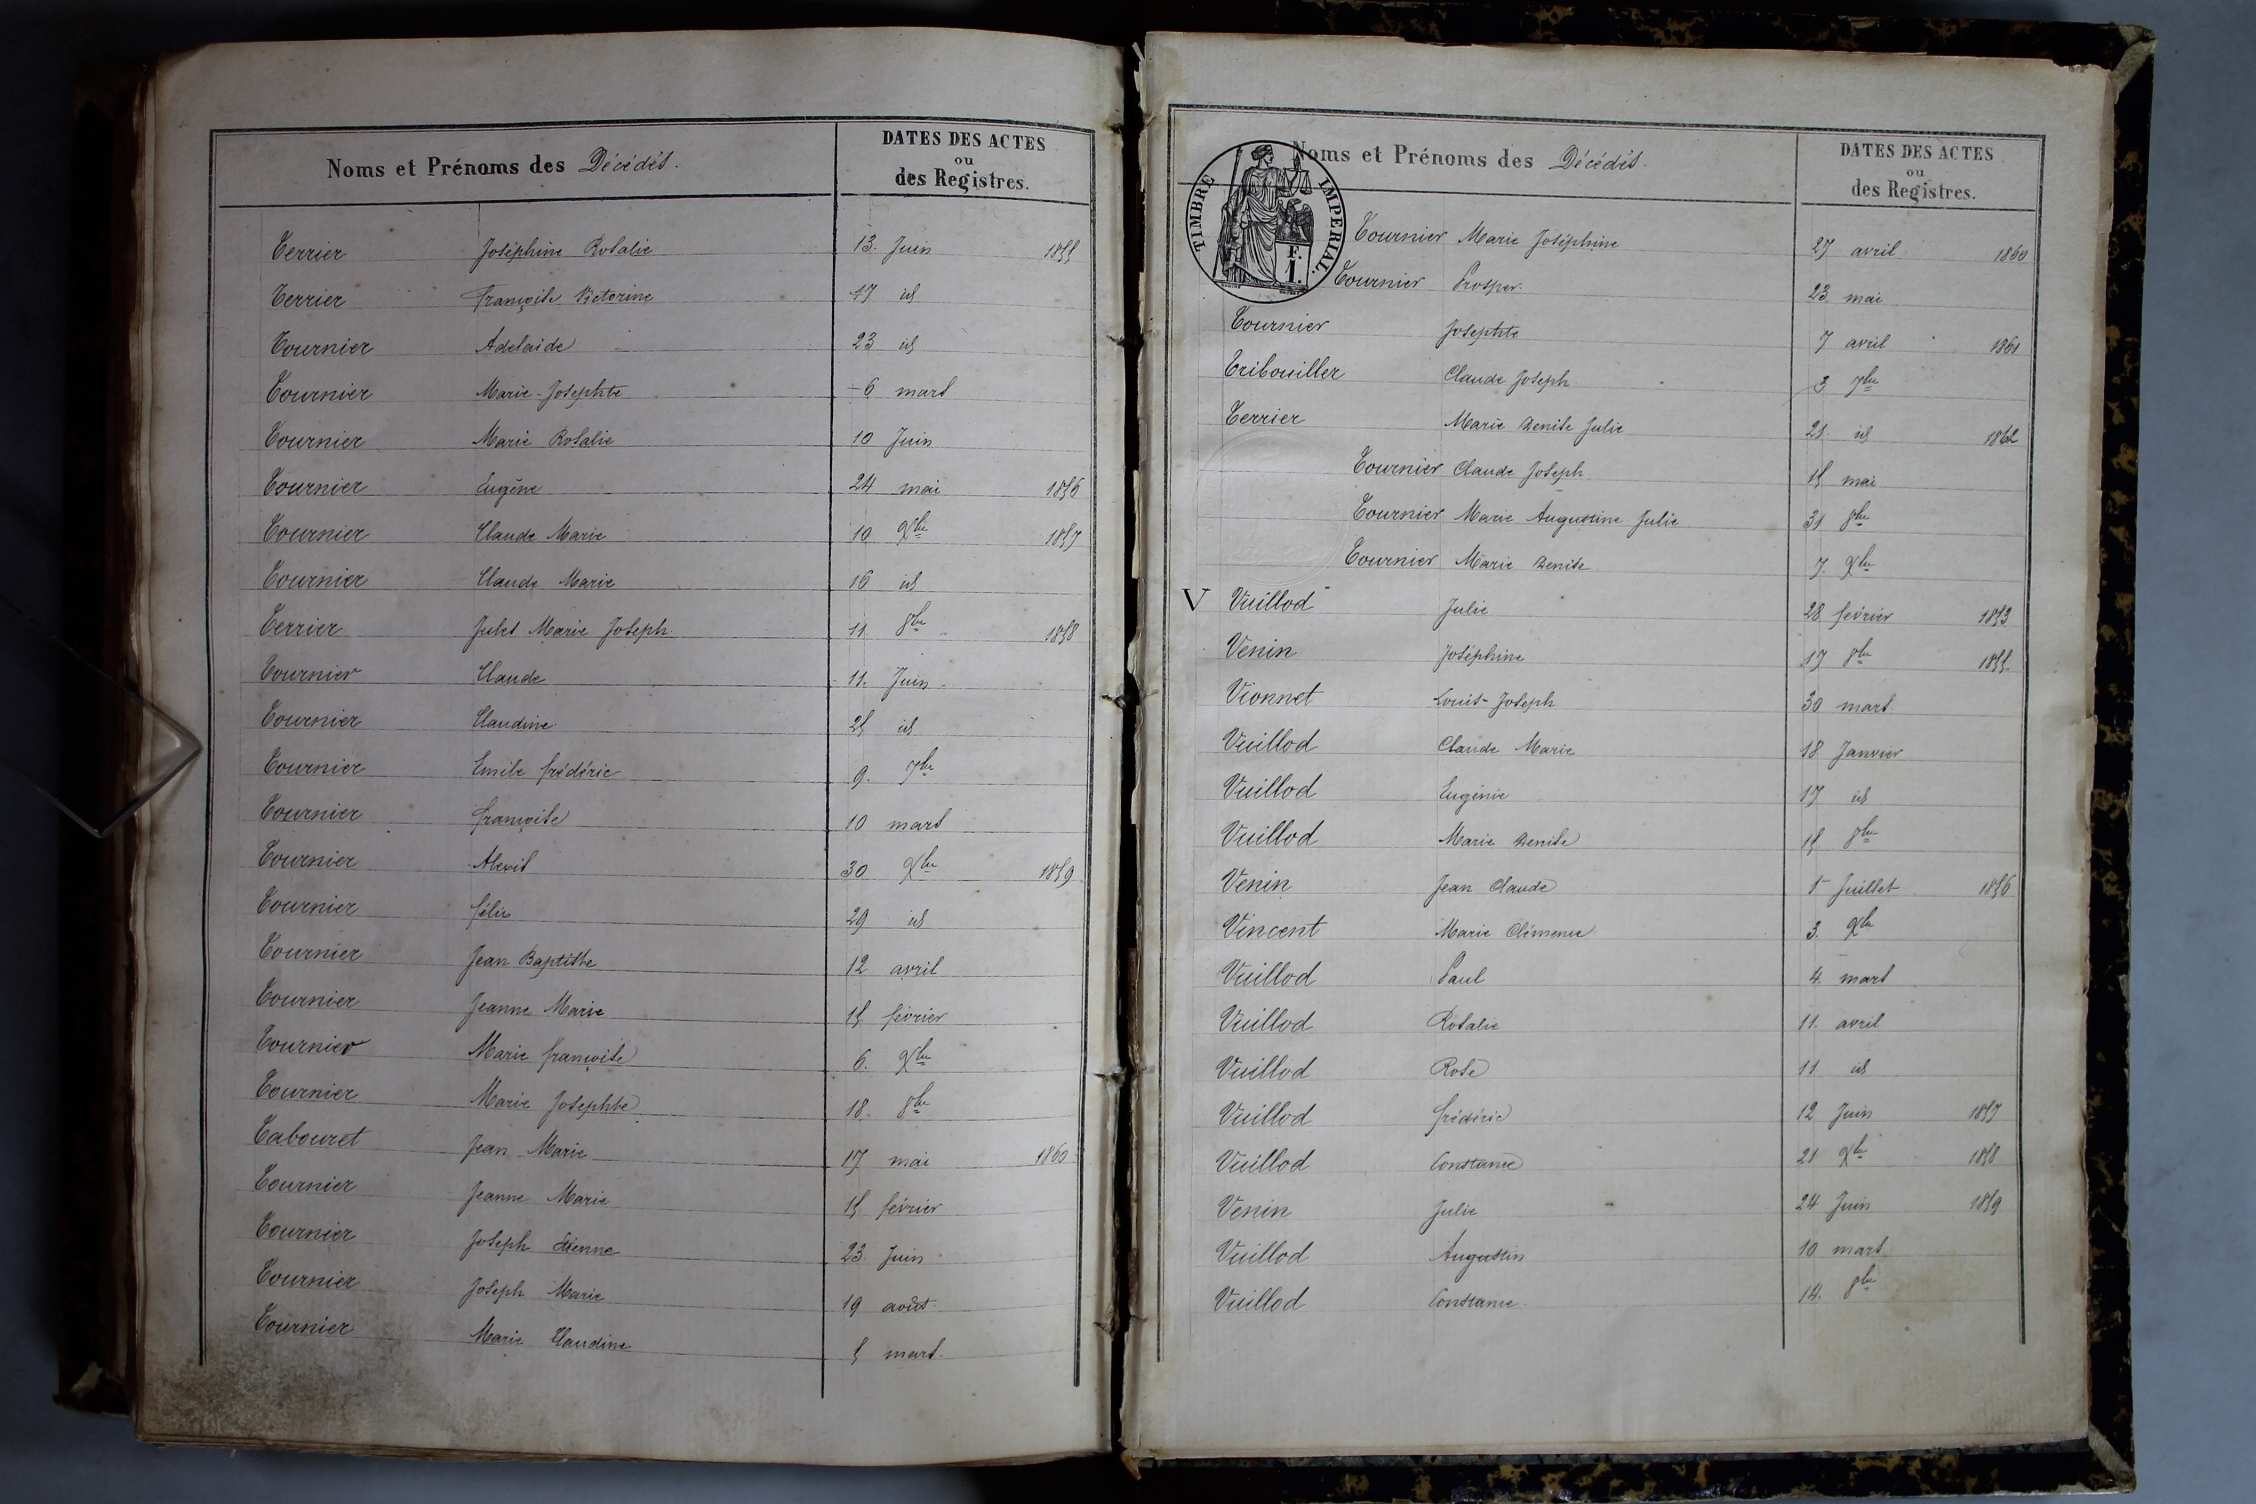 Noms et Prénoms des Décédés.
DATES DES ACTES
ou
des Registres.
Terrier Joséphine Rosalie 13. Juin 1855
Terrier françoise Victorine 17 id
Tournier Adelaide 23 id
Tournier Marie-Josephte 6 mars
Tournier Marie Rosalie 10 Juin
Tournier Eugène 24 mai 1856
Tournier Claude Marie 10 Xbre 1857
Tournier Claude Marie 16 id
Terrier Jules Marie Joseph 11 8bre 1858
Tournier Claude 11. Juin
Tournier Claudine 25 id
Tournier Emile frédéric 9. 7bre
Tournier françoise 10 mars
Tournier Alexis 30 Xbre 1859
Tournier félix 29 id
Tournier Jean Baptiste 12 avril
Tournier Jeanne Marie 15 février
Tournier Marie françoise 6. Xbre
Tournier Marie Josephte 18. 8bre
Tabouret Jean Marie 17 mai 1860
Tournier Jeanne Marie 15 février
Tournier Joseph Etienne 23 Juin
Tournier Joseph Marie 19 août
Tournier Marie Claudine 5 mars
TIMBRE IMPERIAL.
F.
1.
Noms et Prénoms des Décédés.
DATES DES ACTES
ou
des Registres.
Tournier Marie Joséphine 27 avril 1860
Tournier Prosper 23 mai
Tournier Josephte 7 avril 1861
Tribouiller Claude Joseph 3 7bre
Terrier Marie Denise Julie 21 id 1862
Tournier Claude Joseph 15 mai
Tournier Marie Augustine Julie 31 8bre
Tournier Marie Denise 7. Xbre
V Vuillod Julie 28 février 1853
Venin Joséphine 17 8bre 1855
Vionnet Louis-Joseph 30 mars
Vuillod Claude Marie 18 Janvier
Vuillod Eugénie 17 id
Vuillod Marie Denise 15 8bre
Venin Jean Claude 5 Juillet 1856
Vincent Marie Clémence 3. Xbre
Vuillod Paul 4. mars
Vuillod Rosalie 11. avril
Vuillod Rose 11 id
Vuillod frédéric 12 Juin 1857
Vuillod Constance 21 Xbre 1858
Venin Julie 24 Juin 1859
Vuillod Augustin 10 mars
Vuillod Constance 14. 8bre